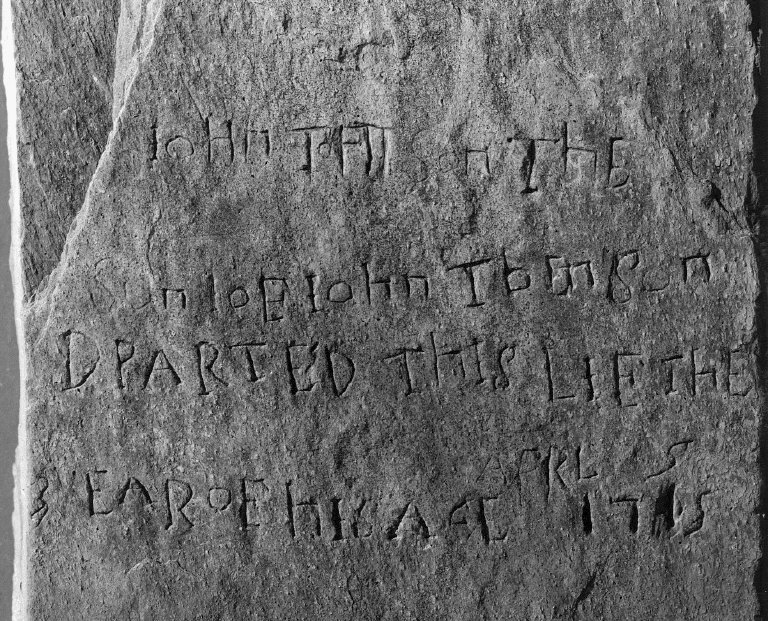 IoHn ToMSon ThE
Son IoE IoHn TbomSon
DPARTED THIS LIFE THE
3 EAR OF HIS AGE APRL 5 1715